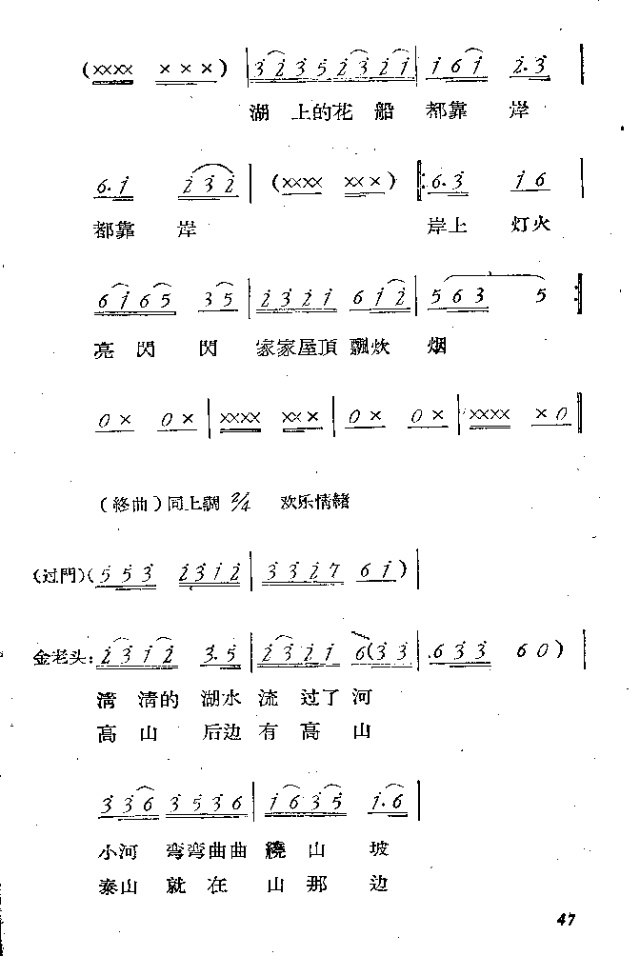 (XXXX X X X) | 3 2 3 5 2 3 2 1 | 1 6 1 2. 3 |
湖 上的花 船 都靠 岸
6. 1 2 3 2 | (XXXX XX X) |: 6. 3 1 6 |
都靠 岸 岸上 灯火
6 1 6 5 3 5 | 2 3 2 1 6 1 2 | 5 6 3 5 :|
亮 閃 閃 家家屋頂 飄炊 烟
0 X 0 X | XXXX XX X | 0 X 0 X | XXXX X 0 ||
(終曲)同上調 2/4 欢乐情緒
(过門)(5 5 3 2 3 1 2 | 3 3 2 7 6 1) |
金老头: 2 3 1 2 3. 5 | 2 3 2 1 6(3 3 | .6 3 3 6 0) |
清 清的 湖水 流 过了 河
高 山 后边 有 高 山
3 3 6 3 5 3 6 | 1 6 3 5 1. 6 |
小河 弯弯曲曲 繞 山 坡
泰山 就 在 山 那 边
47